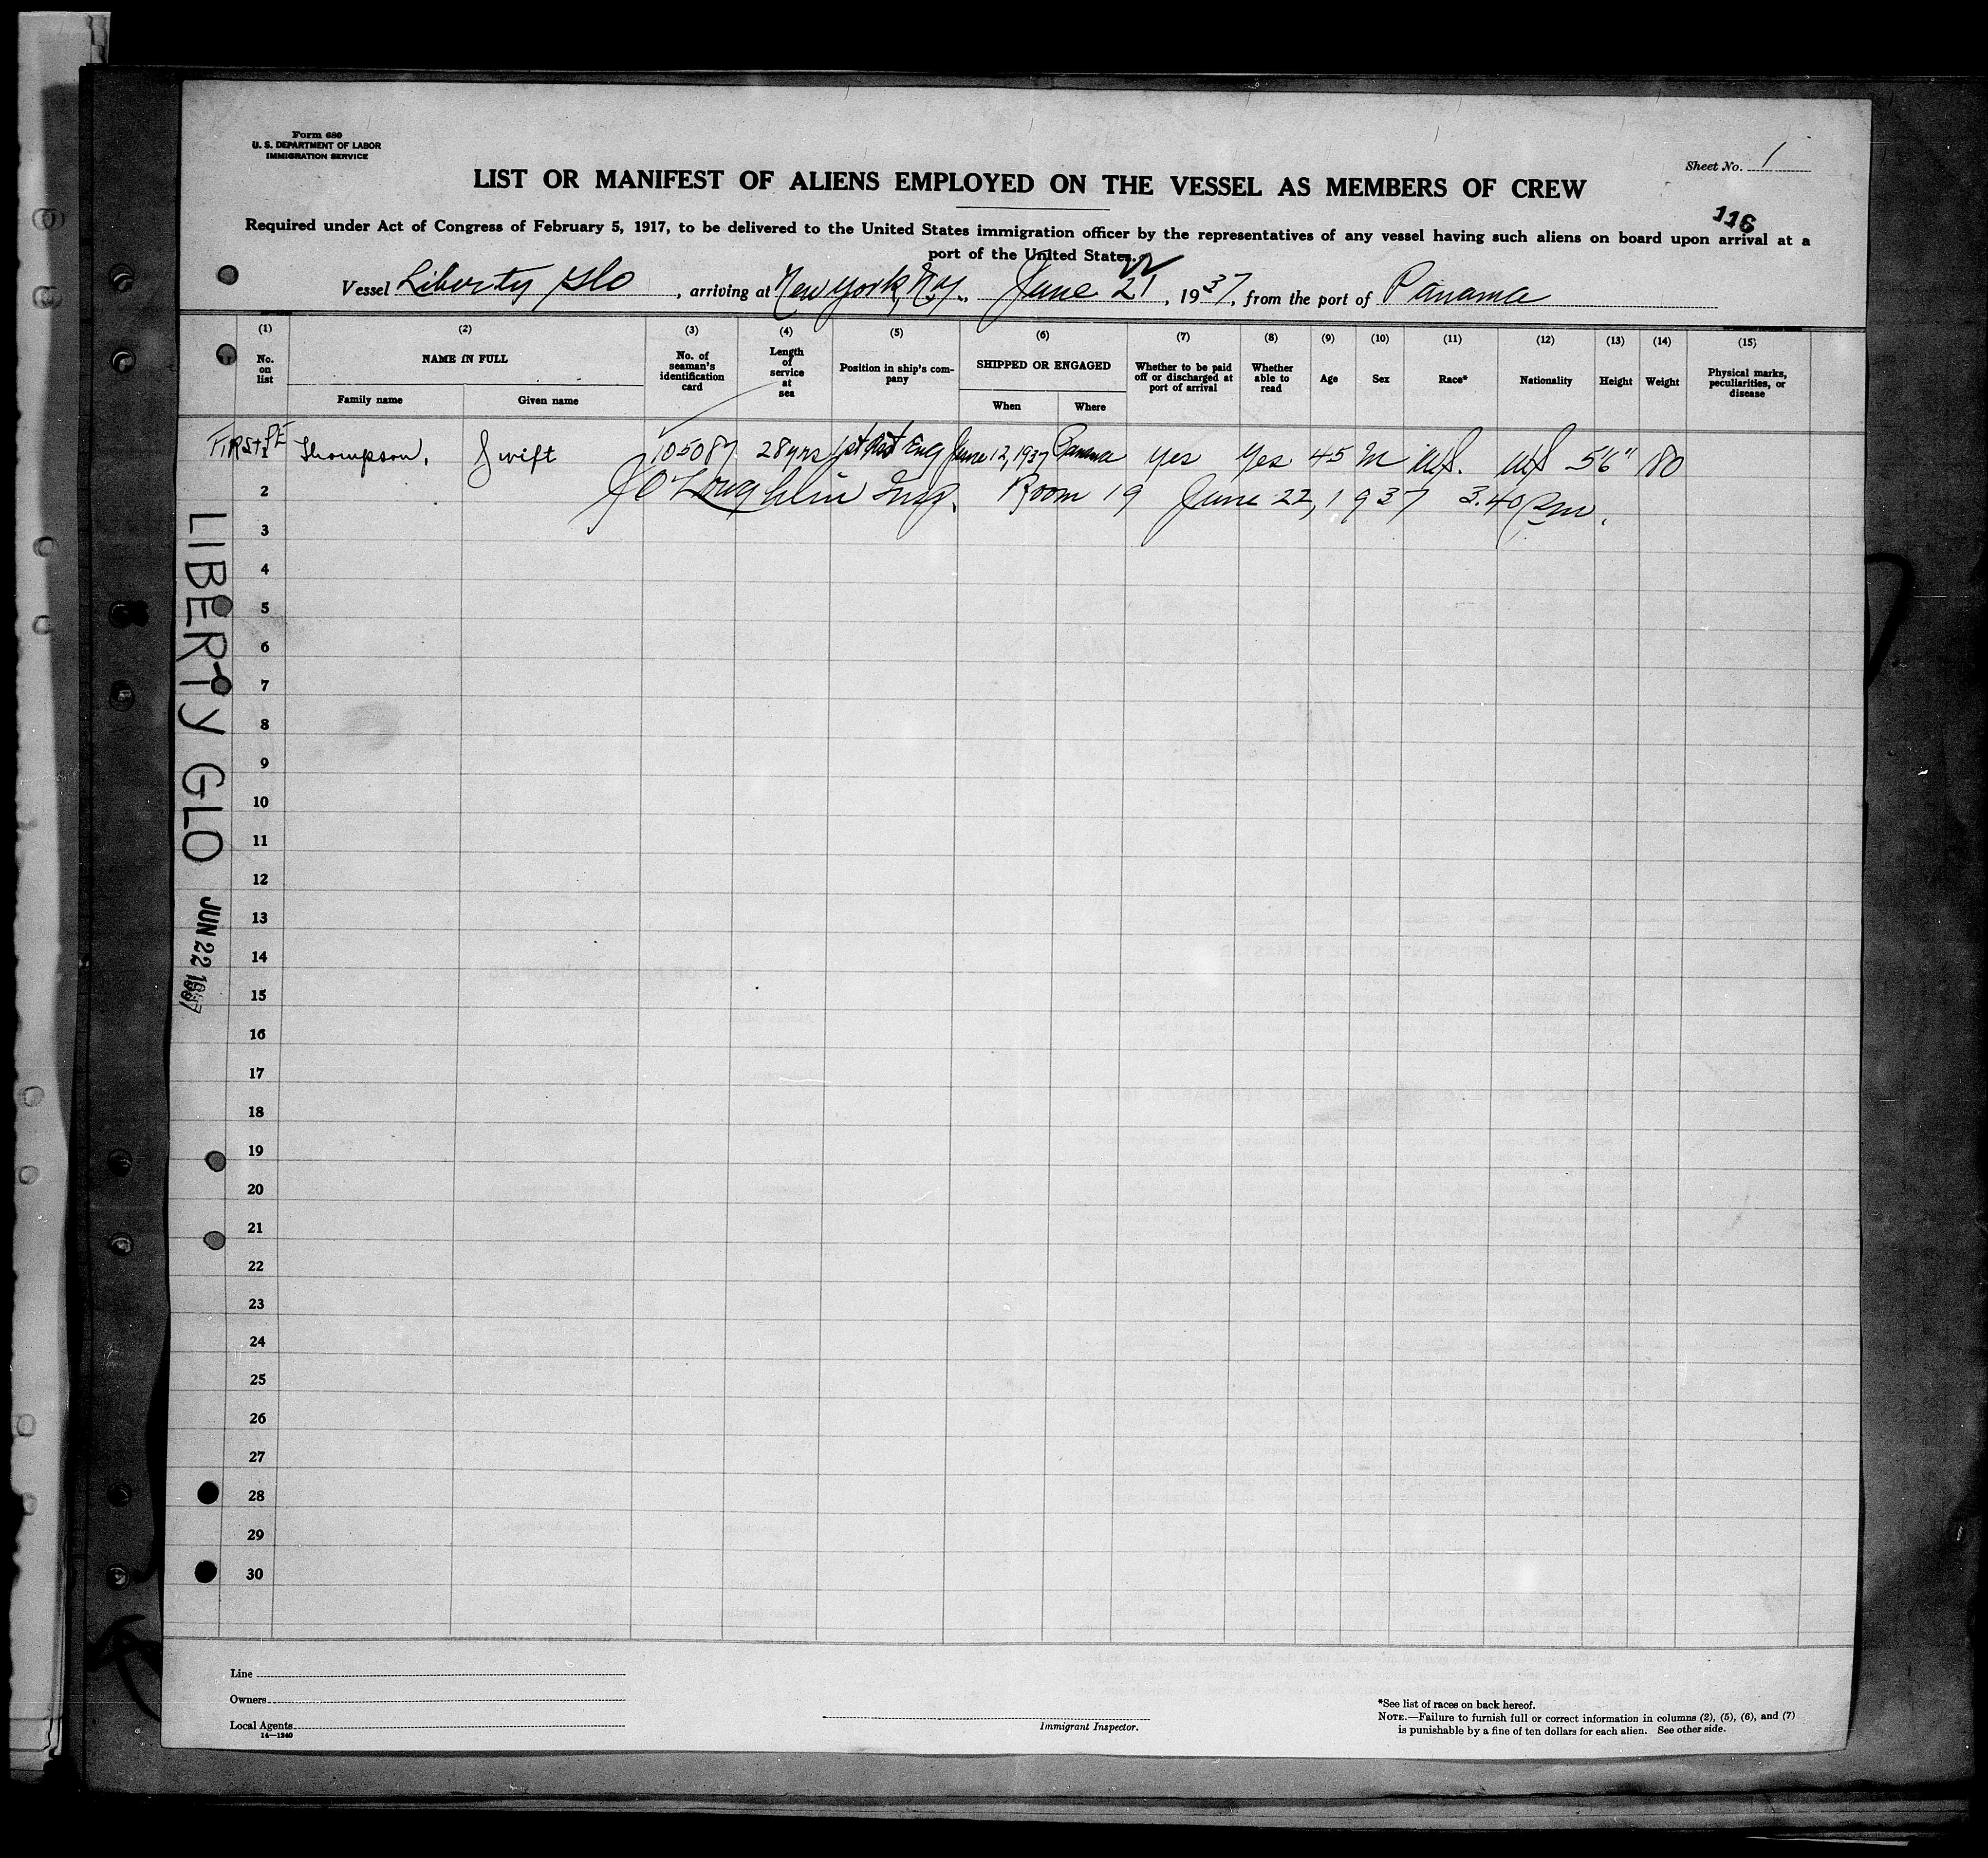 Form 680
U. S. DEPARTMENT OF LABOR
IMMIGRATION SERVICE
Sheet No. 1
LIST OR MANIFEST OF ALIENS EMPLOYED ON THE VESSEL AS MEMBERS OF CREW
116
Required under Act of Congress of February 5, 1917, to be delivered to the United States immigration officer by the representatives of any vessel having such aliens on board upon arrival at a
port of the United States.
22
Vessel Liberty Glo, arriving at New York, N.Y., June 21, 1937, from the port of Panama
(1) (2) (3) (4) (5) (6) (7) (8) (9) (10) (11) (12) (13) (14) (15)
No. on list
NAME IN FULL
Family name
Given name
No. of seaman's identification card
Length of service at sea
Position in ship's com-pany
SHIPPED OR ENGAGED
When
Where
Whether to be paid off or discharged at port of arrival
Whether able to read
Age
Sex
Race*
Nationality
Height
Weight
Physical marks, peculiarities, or disease
FIRST 1 Thompson, Swift 105087 28 yrs 1st Ast Eng June 12, 1937 Panama Yes Yes 45 M U.S. US 5'6" 180
2 J O'Loughlin Insp. Room 19 June 22, 1937 3.40 Pm.
3
4
5
6
7
8
9
10
11
12
13
14
15
16
17
18
19
20
21
22
23
24
25
26
27
28
29
30
LIBERTY GLO
JUN 22 1937
Line
Owners
Local Agents
14—1240
Immigrant Inspector.
*See list of races on back hereof.
NOTE.—Failure to furnish full or correct information in columns (2), (5), (6), and (7)
is punishable by a fine of ten dollars for each alien. See other side.